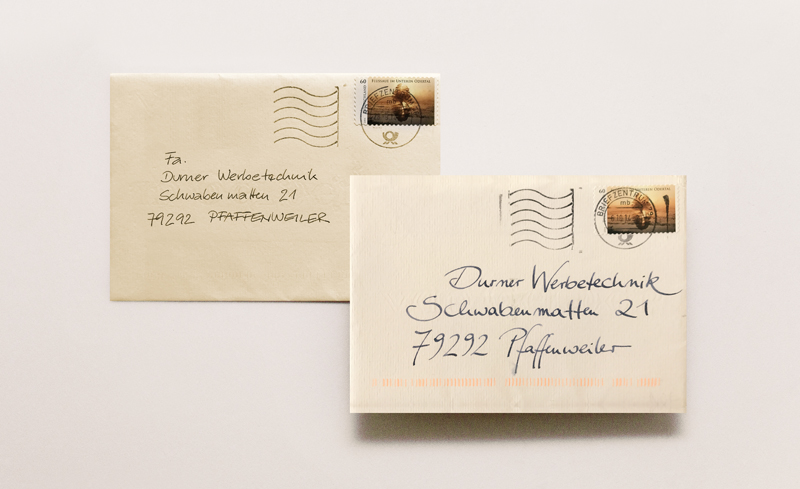 60 FLUSSE IM UNTEREN ODERTAL
BRIEFZENTRUM
Fa.
Durner Werbetechnik
Schwabenmatten 21
79292 PFAFFENWEILER
60 UNTEREN ODERTAL
BRIEFZENTRUM
mb
Durner Werbetechnik
Schwabenmatten 21
79292 Pfaffenweiler